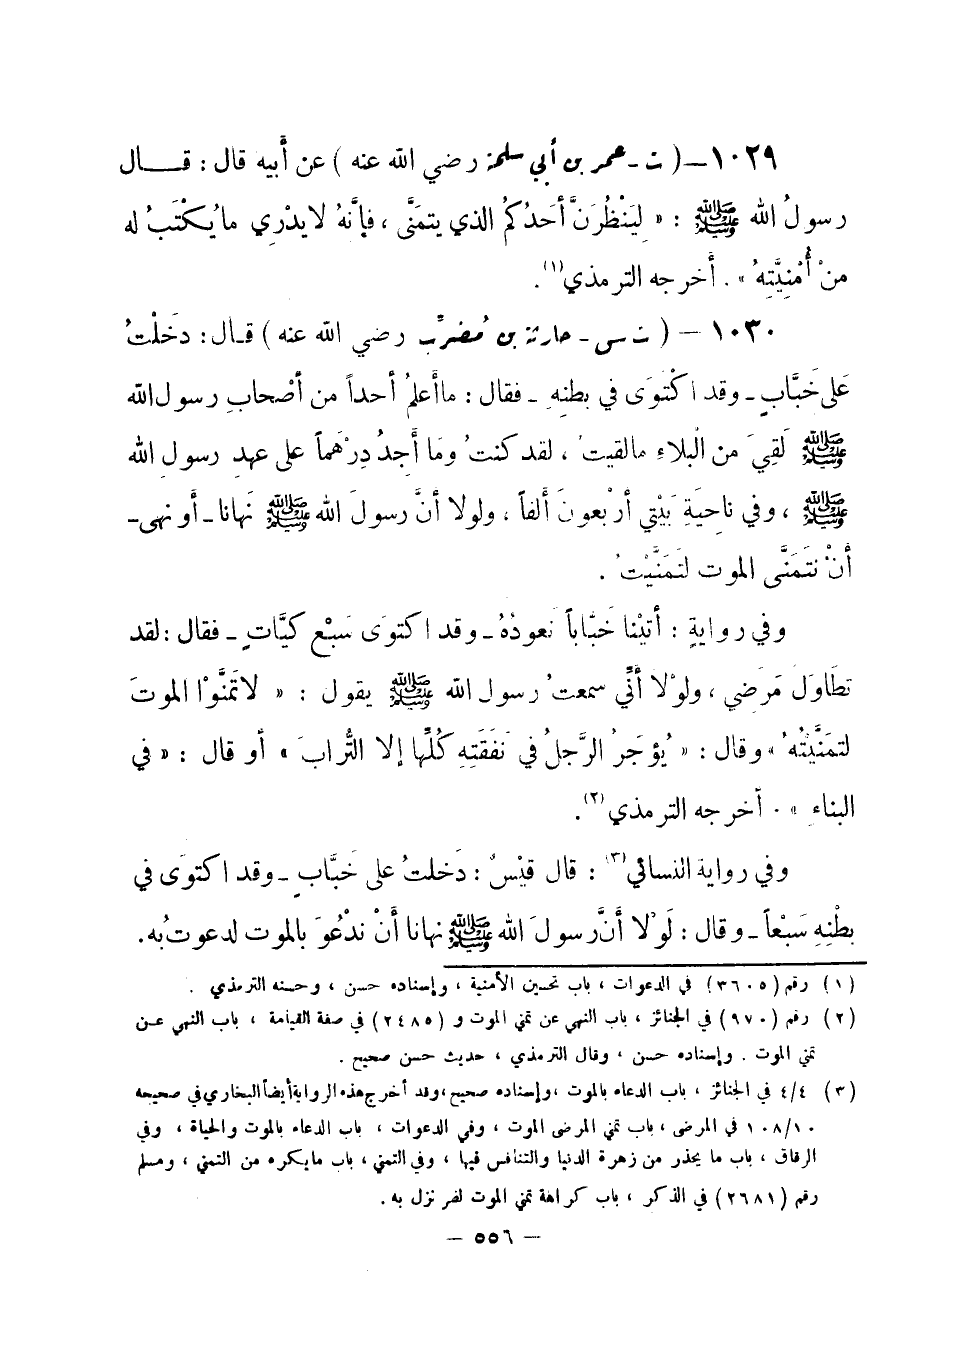 ١٠٢٩ – ( ت - عمر بن أبي سلمة رضي الله عنه ) عن أبيه قال : قــــال
رسولُ الله ﷺ : « لِيَنْظُرَنَّ أحَدُكُمُ الذي يتمنَّى ، فإنَّهُ لا يدْرِي ما يُكْتَبُ له
منْ أُمْنِيَّتِهُ » . أخرجه الترمذي(١) .
١٠٣٠ – ( ت س - حارثة بن مُضَرِّب رضي الله عنه ) قـال : دَخَلْتُ
عَلى خَبَّابٍ - وقد اكْتَوَى في بطنِهِ - فقال : ما أَعلمُ أحداً من أصْحابِ رسول الله
ﷺ لَقِيَ من البْلاءِ ما لقيتُ ، لقد كنتُ ومَا أَجدُ دِرْهَماً على عهدِ رسولِ الله
ﷺ ، وفي ناحِيَةِ بَيْتِي أربْعونَ ألفاً ، ولولا أنَّ رسولَ الله ﷺ نَهانا - أو نهى -
أنْ نَتَمَنَّى الموت لَتَمَنَّيْتُ .
وفي روايةٍ : أتيْنا خَبَّاباً نَعودُهُ - وقد اكتوَى سَبْع كيَّاتٍ - فقال : لقد
تطَاوَلَ مَرَضي ، ولوْلا أنِّي سمعتُ رسول الله ﷺ يقول : « لا تَمنَّوْا الموتَ
لتمنَّيْتُهُ » وقال : « يُؤجَرُ الرَّجلُ في نَفَقَتِهِ كُلِّها إلا التُّرابَ » أو قال : « في
البناءِ » . أخرجه الترمذي(٢) .
وفي رواية النسائي(٣) : قال قيْسٌ : دَخلتُ على خَبَّابٍ - وقد اكتوَى في
بطْنِهِ سَبْعاً - وقال : لَوْلا أَنَّ رسولَ الله ﷺ نهانا أنْ ندْعُوَ بالموت لدعوتُ به .
(١) رقم (٣٦٠٥) في الدعوات ، باب تحسين الأمنية ، وإسناده حسن ، وحسنه الترمذي .
(٢) رقم (٩٧٠) في الجنائز ، باب النهي عن تمني الموت و (٢٤٨٥) في صفة القيامة ، باب النهي عن
تمني الموت . وإسناده حسن ، وقال الترمذي ، حديث حسن صحيح .
(٣) ٤/٤ في الجنائز ، باب الدعاء بالموت ، وإسناده صحيح ، وقد أخرج هذه الرواية أيضاً البخاري في صحيحه
١٠٨/١٠ في المرضى ، باب تمني المرضى الموت ، وفي الدعوات ، باب الدعاء بالموت والحياة ، وفي
الرقاق ، باب ما يحذر من زهرة الدنيا والتنافس فيها ، وفي التمني ، باب ما يكره من التمني ، ومسلم
رقم (٢٦٨١) في الذكر ، باب كراهة تمني الموت لضر نزل به .
– ٥٥٦ –